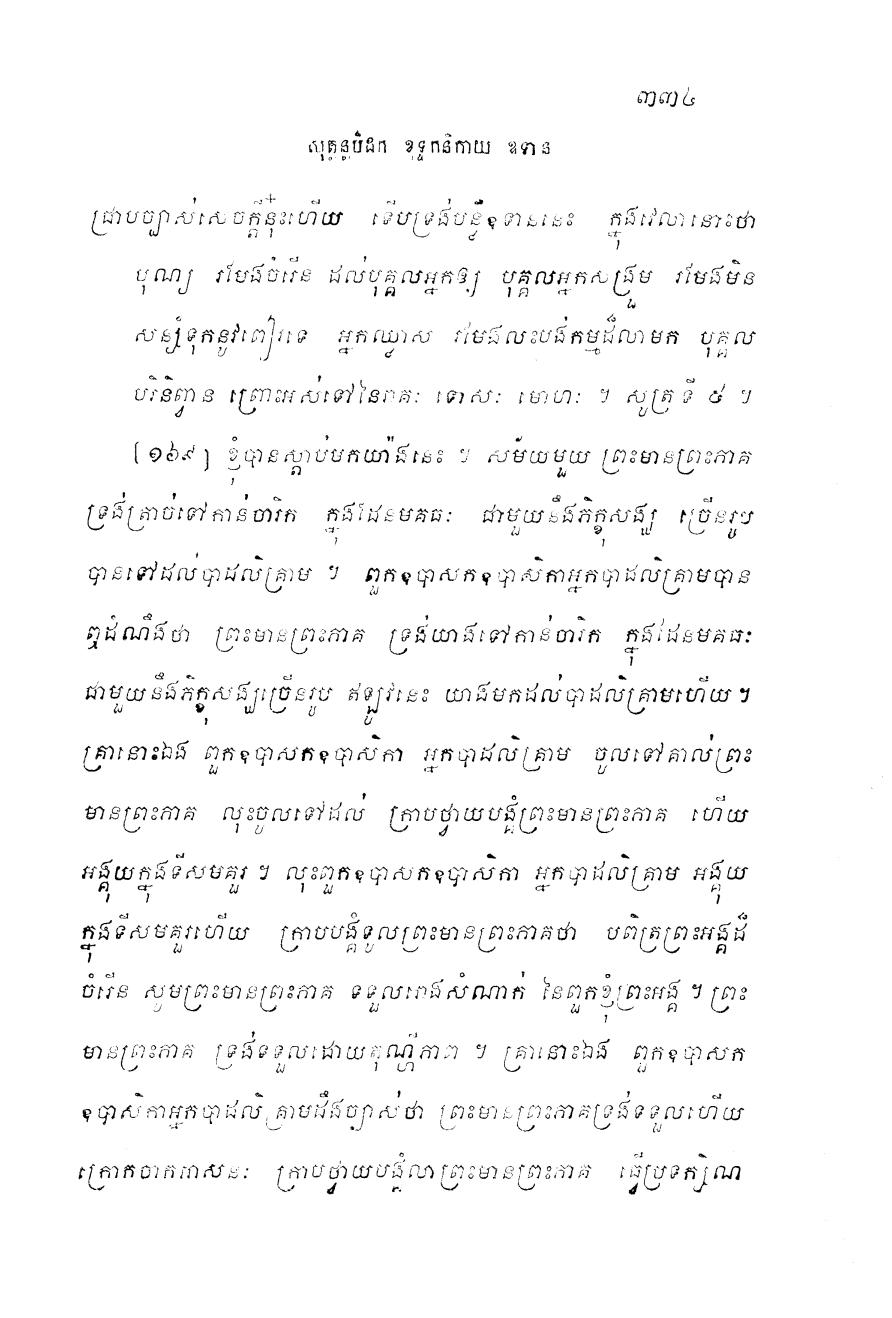 ៣៣៤
សុត្តន្តបិដក ខុទ្ទកនិកាយ ឧទាន
ជ្រាបច្បាស់សេចក្តីនុ៎ះហើយ ទើបទ្រង់បន្លឺឧទាននេះ ក្នុងវេលានោះថា
បុណ្យ រមែងចំរើន ដល់បុគ្គលអ្នកឲ្យ បុគ្គលអ្នកសង្រួម រមែងមិន
សន្សំទុកនូវពៀរទេ អ្នកឈ្លាស រមែងលះបង់កម្មដ៏លាមក បុគ្គល
បរិនិព្វាន ព្រោះអស់ទៅនៃរាគៈ ទោសៈ មោហៈ ។ សូត្រ ទី ៥ ។
[១៦៩] ខ្ញុំបានស្តាប់មកយ៉ាងនេះ ។ សម័យមួយ ព្រះមានព្រះភាគ
ទ្រង់ត្រាច់ទៅកាន់ចារិក ក្នុងដែនមគធៈ ជាមួយនឹងភិក្ខុសង្ឃ ច្រើនរូប
បានទៅដល់បាដលិគ្រាម ។ ពួកឧបាសកឧបាសិកាអ្នកបាដលិគ្រាមបាន
ឮដំណឹងថា ព្រះមានព្រះភាគ ទ្រង់យាងទៅកាន់ចារិក ក្នុងដែនមគធៈ
ជាមួយនឹងភិក្ខុសង្ឃច្រើនរូប ឥឡូវនេះ យាងមកដល់បាដលិគ្រាមហើយ ។
គ្រានោះឯង ពួកឧបាសកឧបាសិកា អ្នកបាដលិគ្រាម ចូលទៅគាល់ព្រះ
មានព្រះភាគ លុះចូលទៅដល់ ក្រាបថ្វាយបង្គំព្រះមានព្រះភាគ ហើយ
អង្គុយក្នុងទីសមគួរ ។ លុះពួកឧបាសកឧបាសិកា អ្នកបាដលិគ្រាម អង្គុយ
ក្នុងទីសមគួរហើយ ក្រាបបង្គំទូលព្រះមានព្រះភាគថា បពិត្រព្រះអង្គដ៏
ចំរើន សូមព្រះមានព្រះភាគ ទទួលរោងសំណាក់ នៃពួកខ្ញុំព្រះអង្គ ។ ព្រះ
មានព្រះភាគ ទ្រង់ទទួលដោយតុណ្ហីភាព ។ គ្រានោះឯង ពួកឧបាសក
ឧបាសិកាអ្នកបាដលិគ្រាមដឹងច្បាស់ថា ព្រះមានព្រះភាគទ្រង់ទទួលហើយ
ក្រោកចាកអាសនៈ ក្រាបថ្វាយបង្គំលាព្រះមានព្រះភាគ ធ្វើប្រទក្សិណ